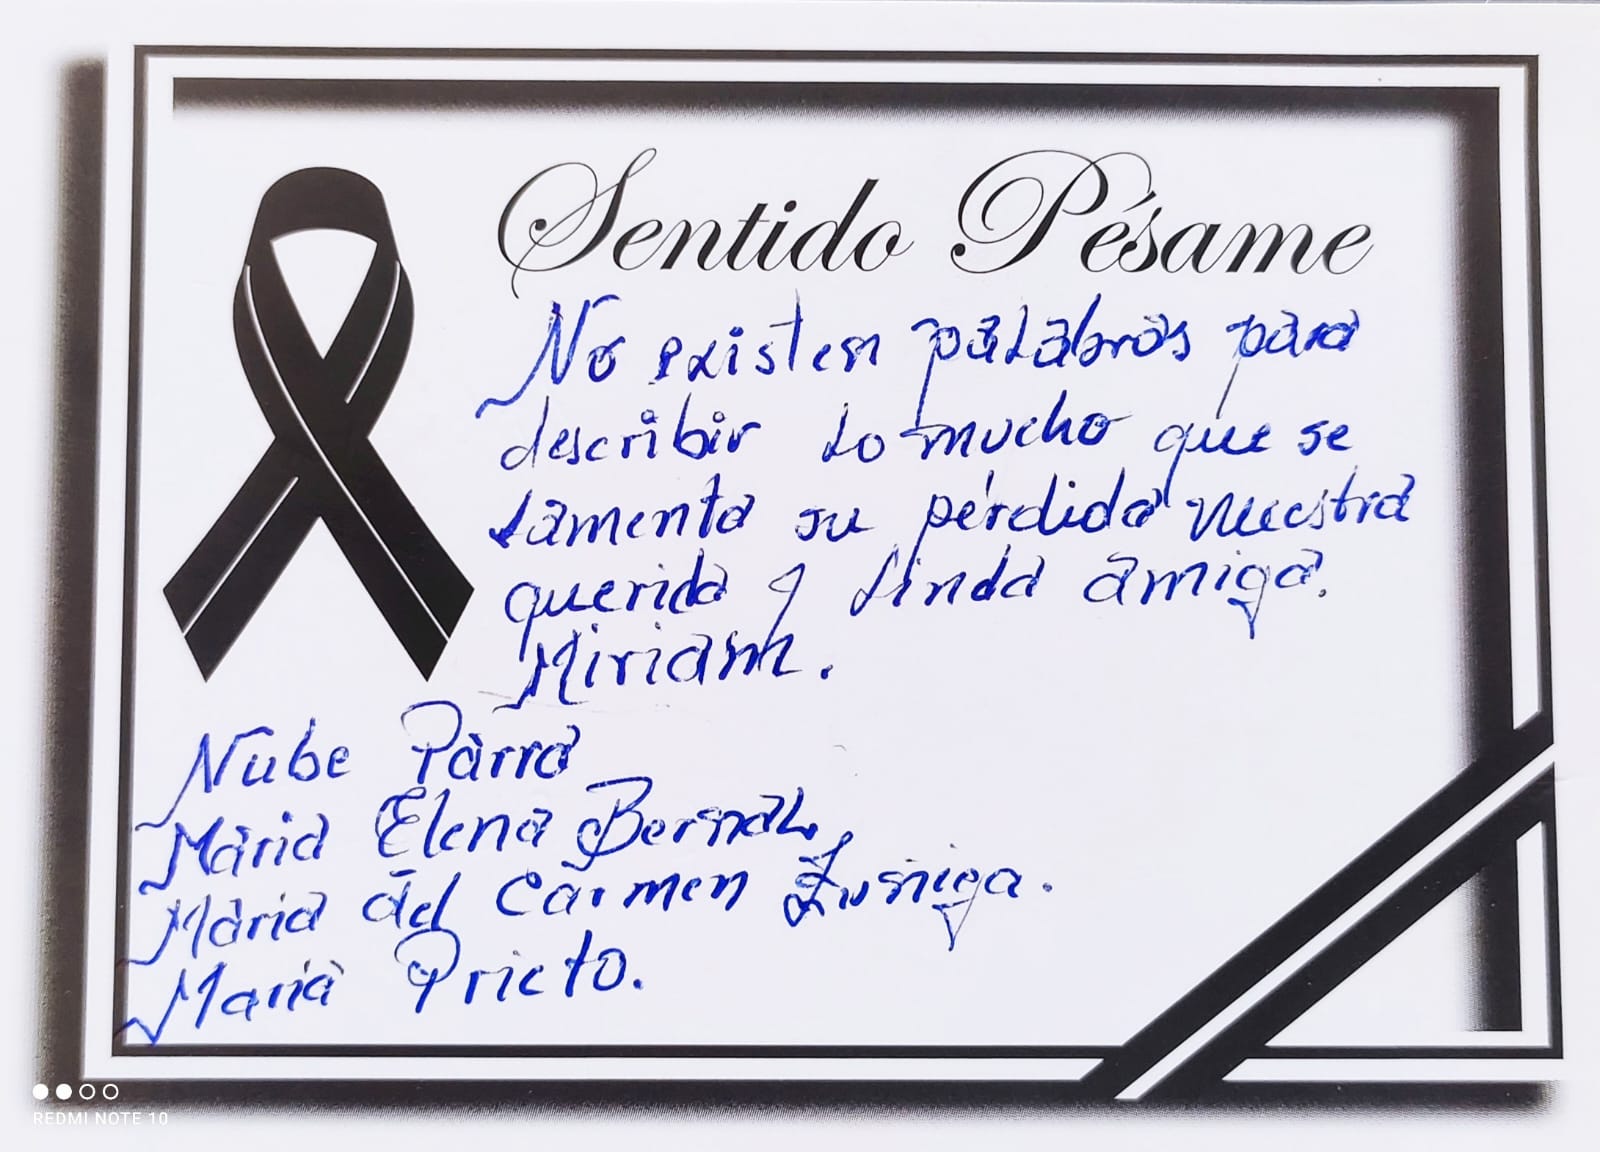 Sentido Pésame
No existen palabras para
describir lo mucho que se
lamenta su pérdida nuestra
querida y linda amiga.
Miriam.
Nube Parra
Maria Elena Bernal,
Maria del Carmen Zuñiga.
Maria Prieto.
REDMI NOTE 10